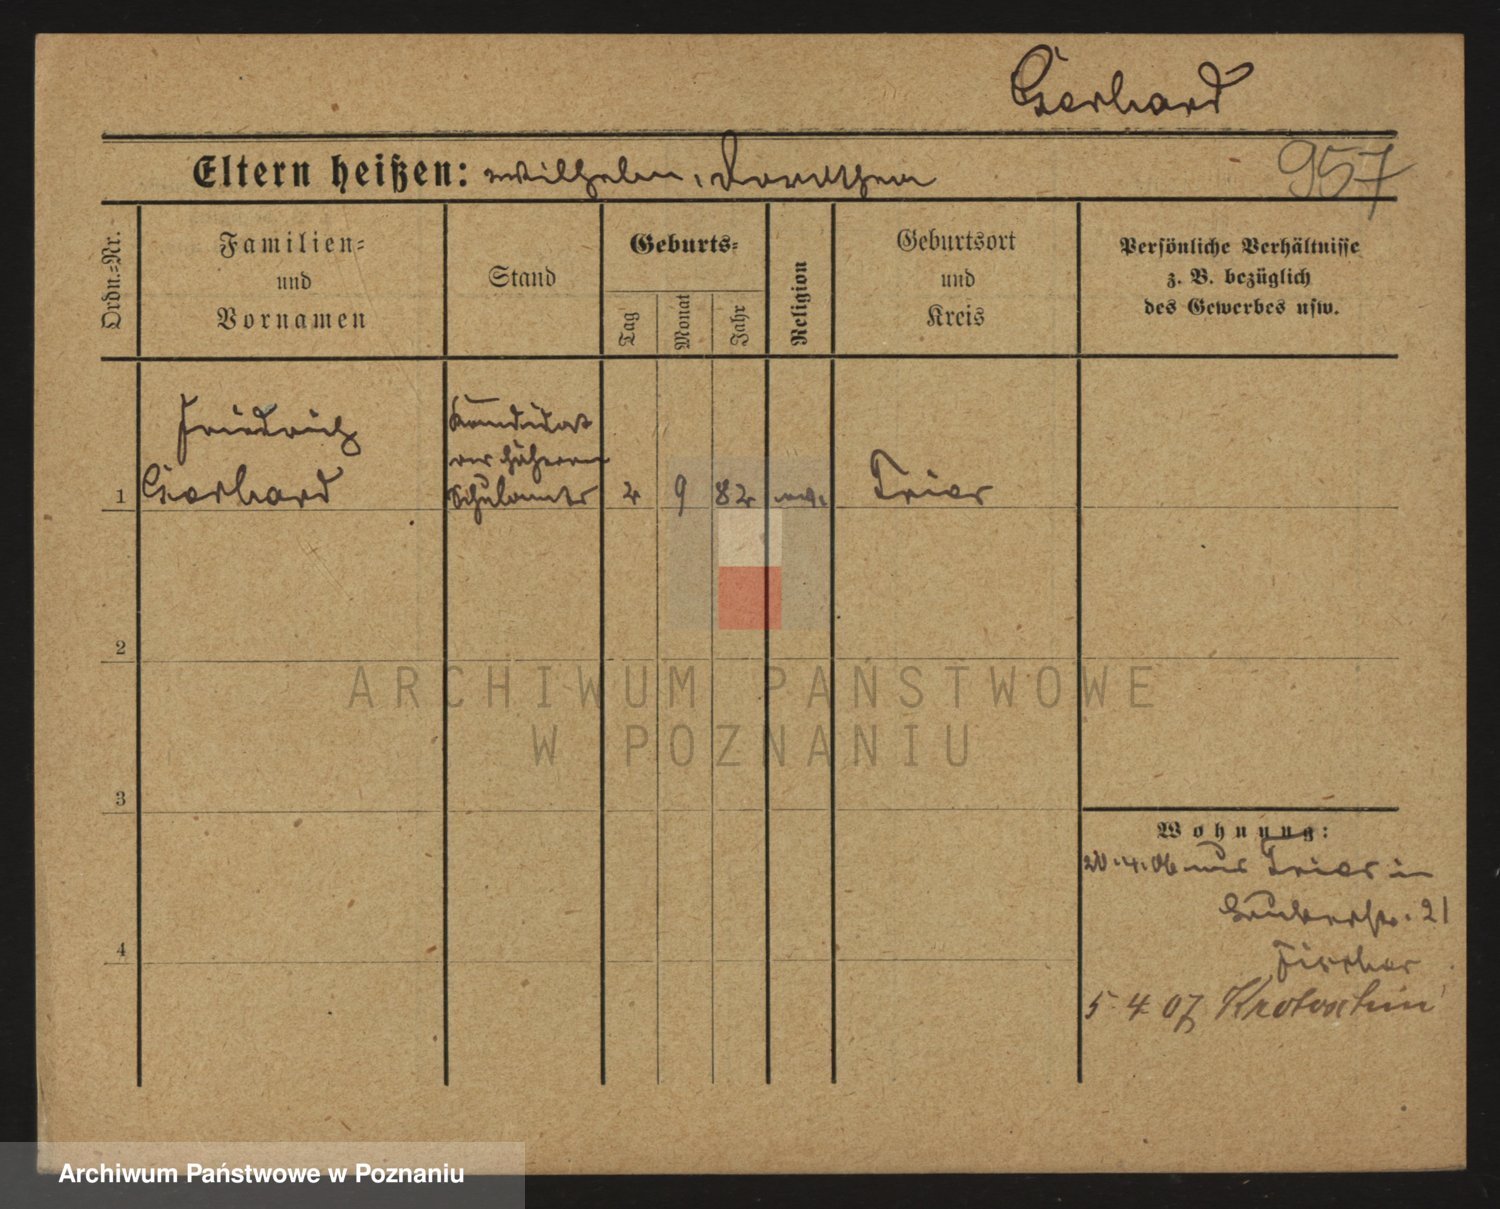 Gerhard
Eltern heißen: Wilhelm, Dorothea
957
Ordn.=Nr.
Familien=
und
Vornamen
Stand
Geburts=
Tag
Monat
Jahr
Religion
Geburtsort
und
Kreis
Persönliche Verhältnisse
z. B. bezüglich
des Gewerbes usw.
Friedrich
Kandidat
des höheren
1 Gerhard Schulamts 2 9 82 ev. Trier
2
3
4
Wohnung:
20.4.06 aus Trier in
21
Fischer
5 4 07 Krotoschin
ARCHIWUM PAŃSTWOWE
W POZNANIU
Archiwum Państwowe w Poznaniu